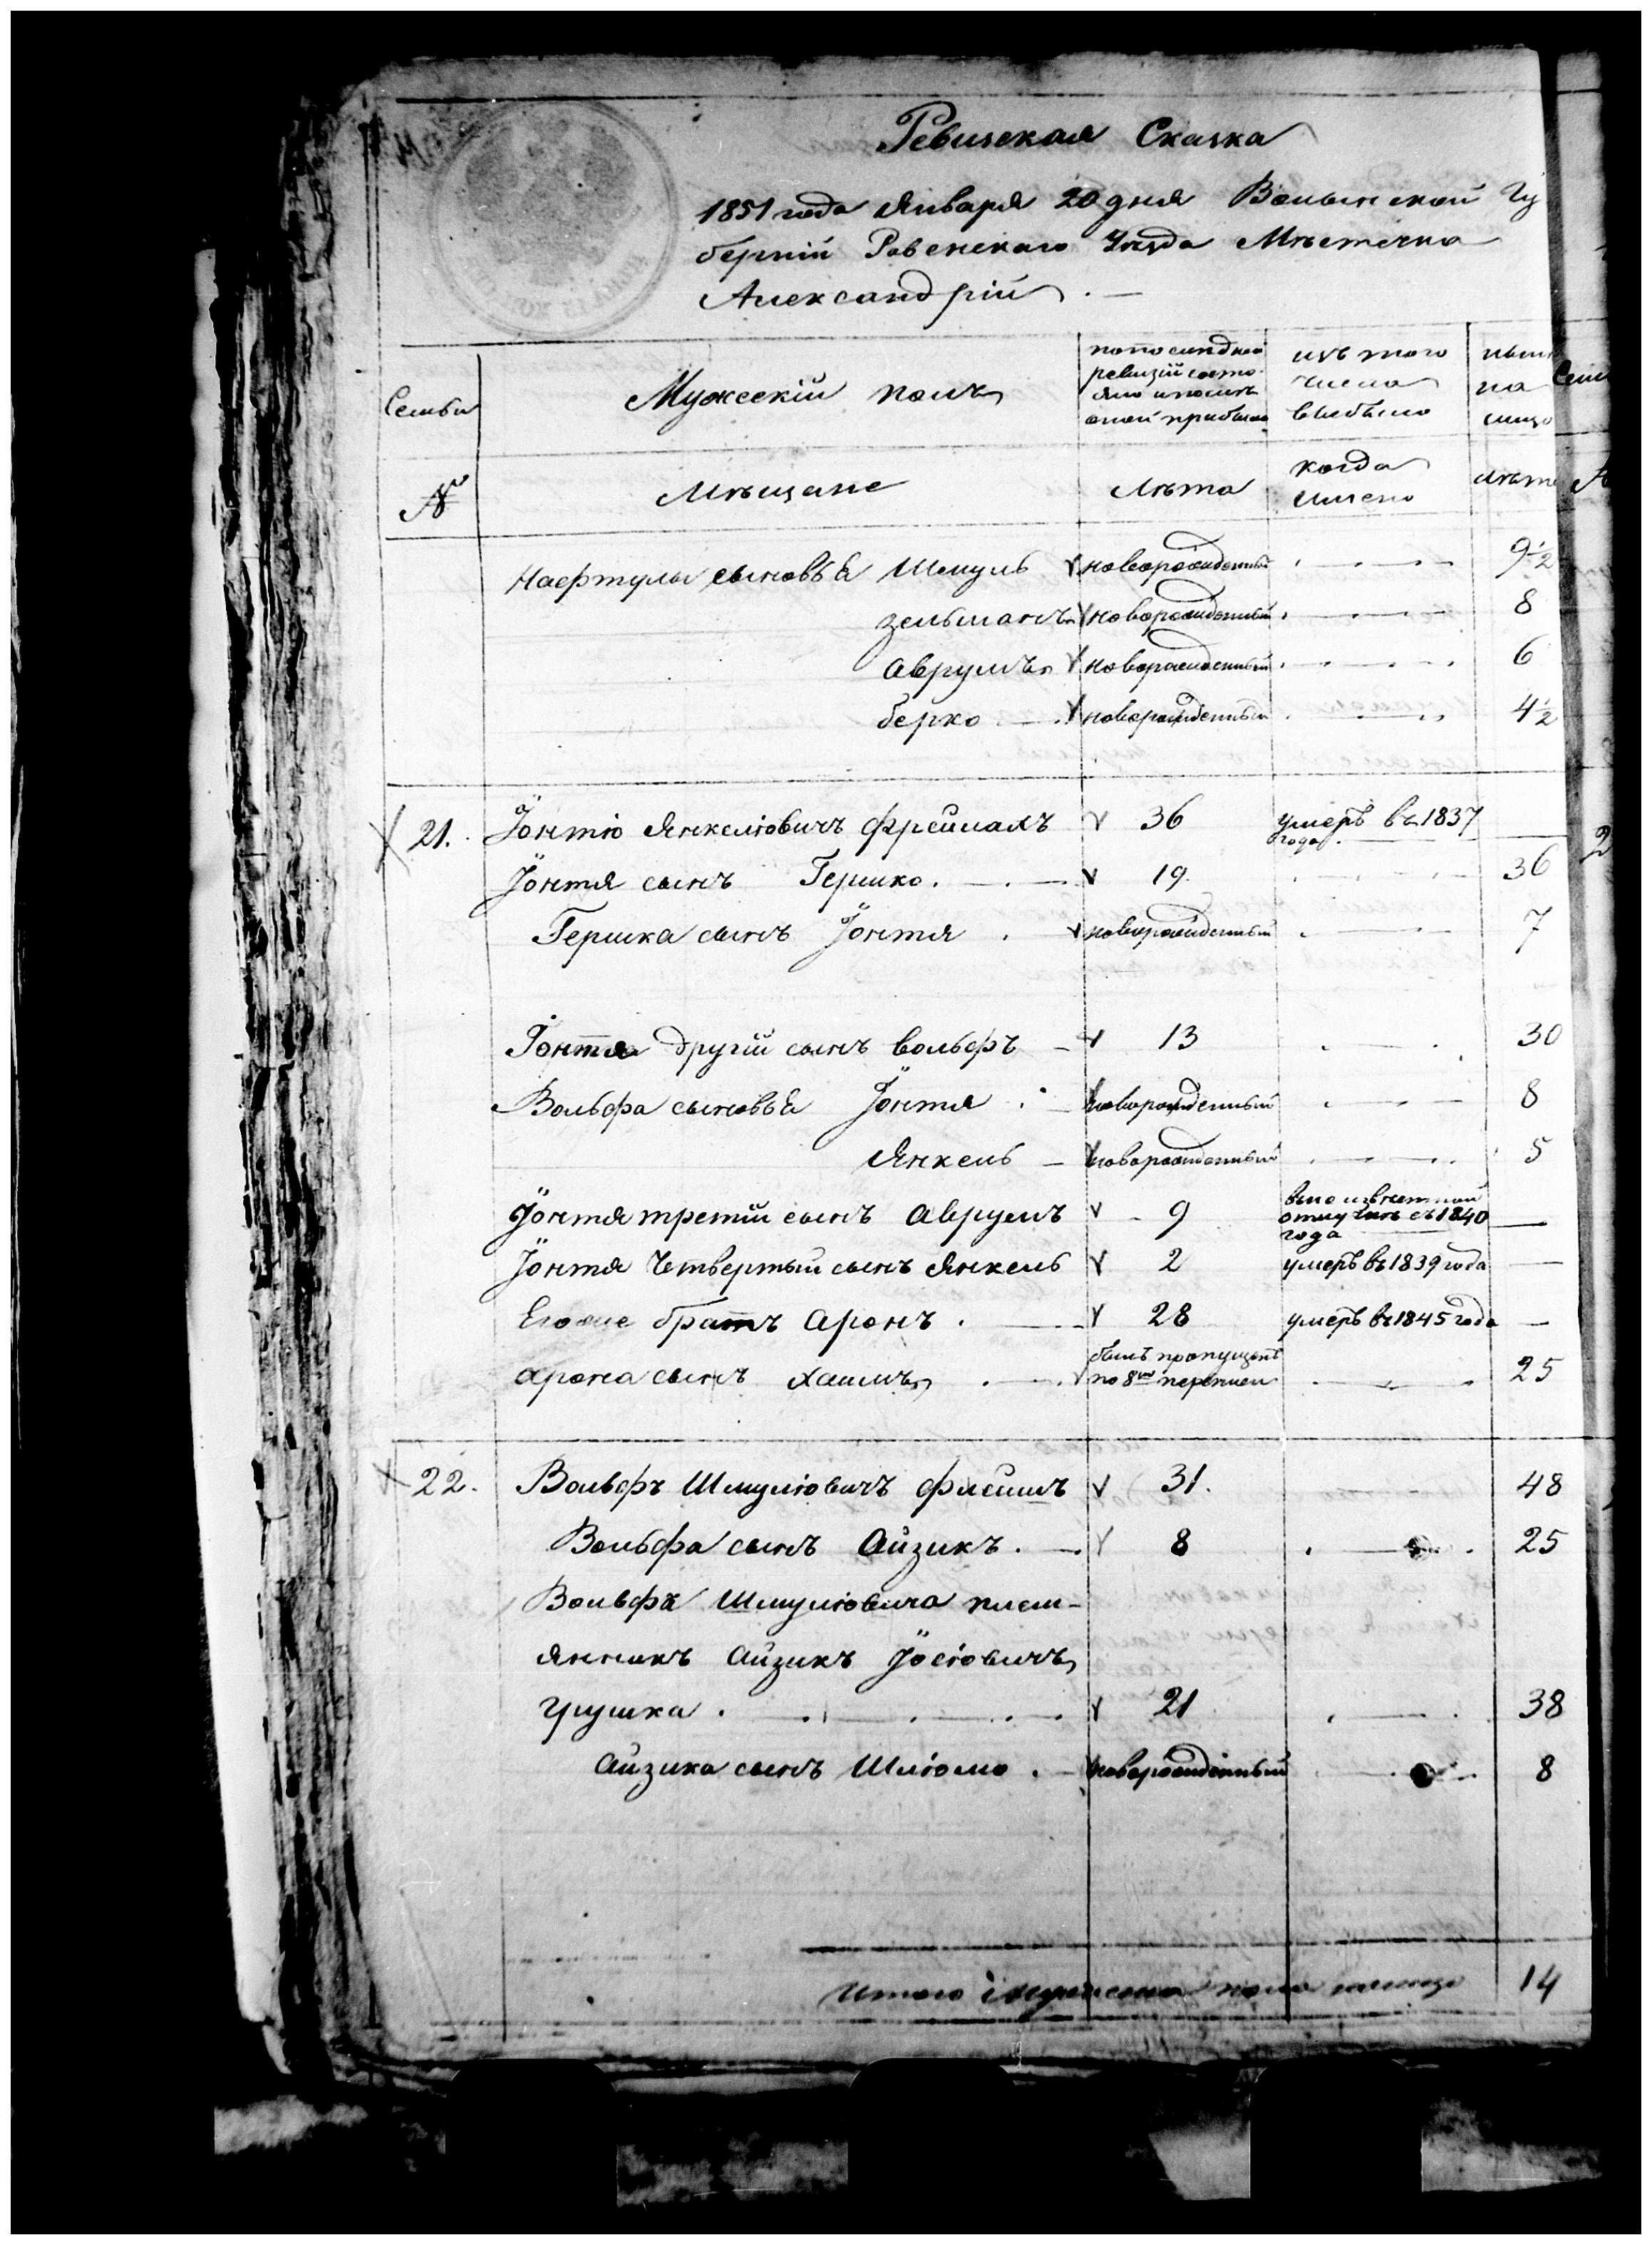 Ревизская Сказка
1851 года Января 20 дня Волынской Гу
берніи Ровенскаго Уѣзда Мѣстечка
Александріи
Семьи
Мужескій полъ
по последней
ревизіи состо
яло и послѣ
оной прибыло
изъ того
числа
выбыло
на
лицо
№
Мѣщане
Лѣта
когда
имено
лѣта
Нафтулы сыновья Шмуль новорожденный 9½
Зельманъ новорожденный 8
Аврумъ новорожденный 6
Берко новорожденный 4½
21. Іонтю Янкелювичъ Фрейманъ 36 умеръ въ 1837
года
Іонтя сынъ Гершко. 19 36
Гершка сынъ Іонтя новорожденный 7
Іонтя другій сынъ Вольфъ 13 30
Вольфа сыновья Іонтя новорожденный 8
Янкель новорожденный 5
Іонтя третій сынъ Аврумъ 9
отлучкѣ съ 1840
года
Іонтя Четвертый сынъ Янкель 2 умеръ въ 1839 года
Егоже братъ Аронъ. 28 умеръ въ 1845 года
Арона сынъ Хаимъ былъ пропущенъ
по 8ой переписи 25
22. Вольфъ Шмулювичъ 31. 48
Вольфа сынъ Айзикъ. 8 25
Вольфа Шмулювича плем-
янникъ Айзикъ Іосіовичъ
Грушка. 21 38
Айзика сынъ Шліомо. новорожденный 8
Итого мужеска пола налицо 14